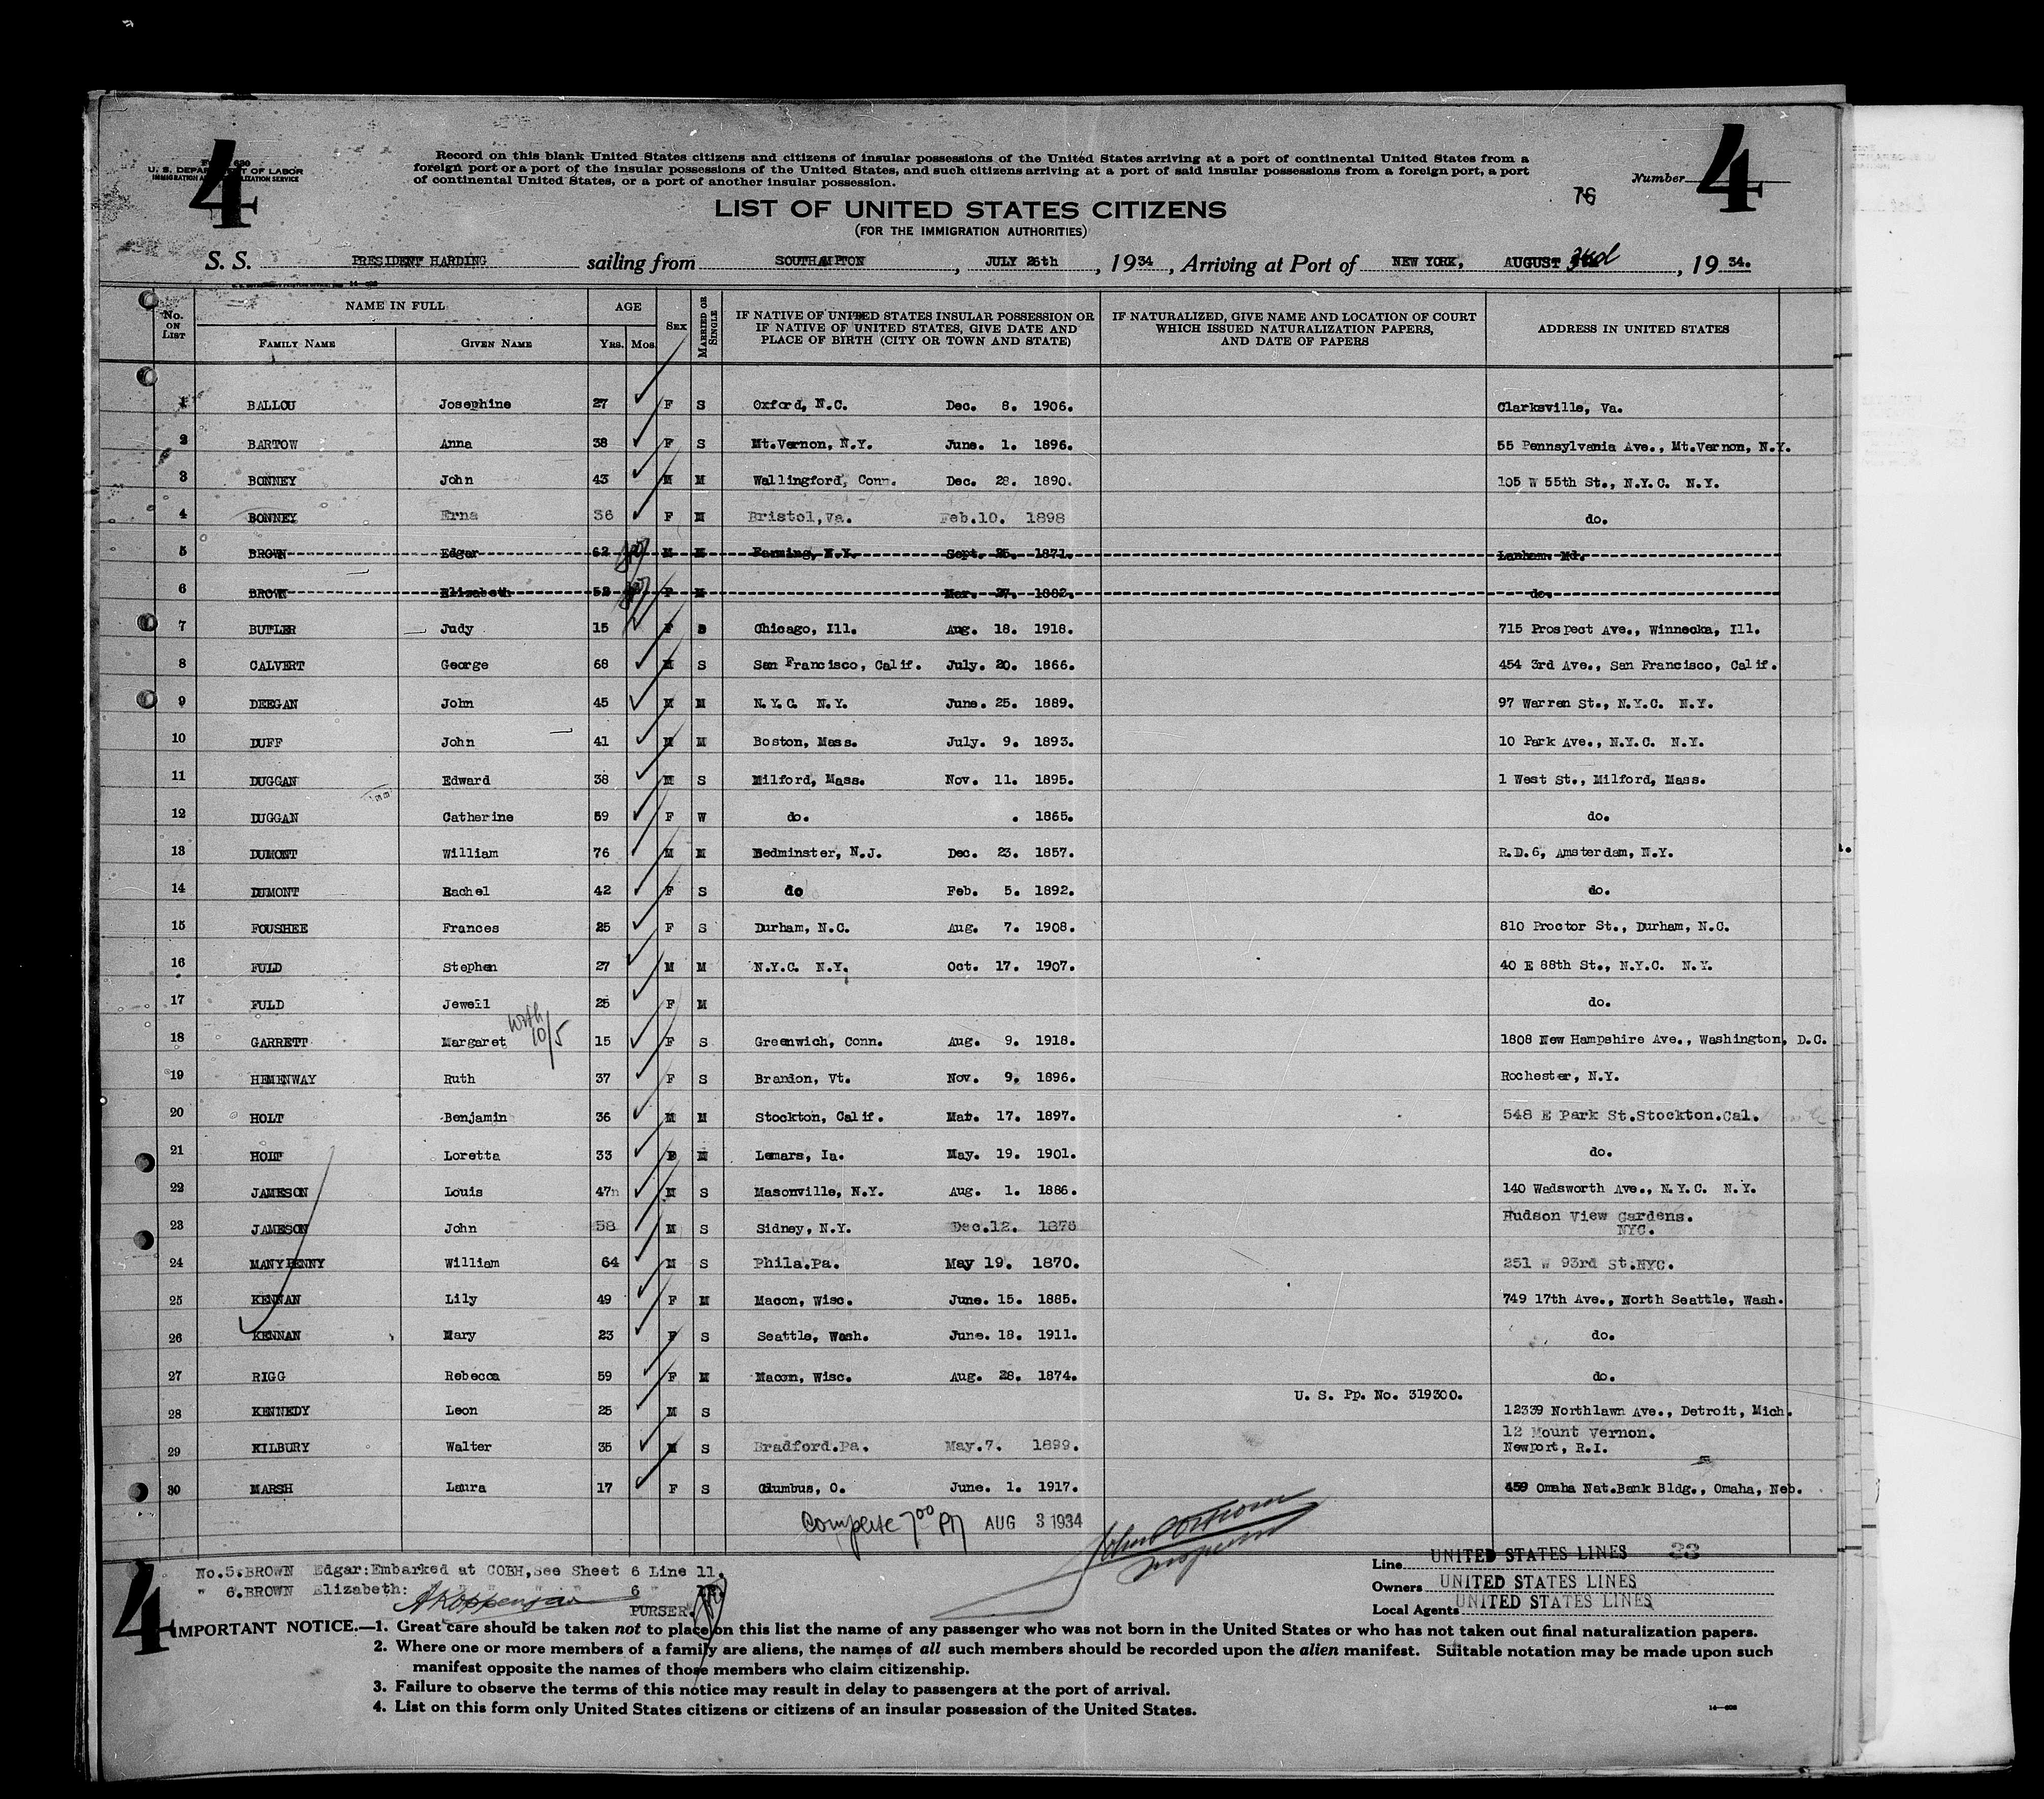 4
4
U. S. DEPARTMENT OF LABOR
IMMIGRATION AND NATURALIZATION SERVICE
Record on this blank United States citizens and citizens of insular possessions of the United States arriving at a port of continental United States from a
foreign port or a port of the insular possessions of the United States, and such citizens arriving at a port of said insular possessions from a foreign port, a port
of continental United States, or a port of another insular possession.
Number
76
LIST OF UNITED STATES CITIZENS
(FOR THE IMMIGRATION AUTHORITIES)
S. S. PRESIDENT HARDING sailing from SOUTHAMPTON, JULY 26th, 1934, Arriving at Port of NEW YORK, AUGUST 3rd, 1934.
No. ON LIST NAME IN FULL FAMILY NAME GIVEN NAME AGE YRS. MOS. SEX MARRIED OR SINGLE IF NATIVE OF UNITED STATES INSULAR POSSESSION OR IF NATIVE OF UNITED STATES, GIVE DATE AND PLACE OF BIRTH (CITY OR TOWN AND STATE) IF NATURALIZED, GIVE NAME AND LOCATION OF COURT WHICH ISSUED NATURALIZATION PAPERS, AND DATE OF PAPERS ADDRESS IN UNITED STATES
1 BALLOU Josephine 27 F S Oxford, N.C. Dec. 8. 1906. Clarksville, Va.
2 BARTOW Anna 38 F S Mt.Vernon, N.Y. June. 1. 1896. 55 Pennsylvania Ave., Mt.Vernon, N.Y.
3 BONNEY John 43 M M Wallingford, Conn. Dec. 28. 1890. 105 W 55th St., N.Y.C. N.Y.
4 BONNEY Erna 36 F M Bristol,Va. Feb.10. 1898 do.
5 BROWN Edgar 62 M M Farming, N.Y. Sept. 25. 1871. Lanham. Md.
6 BROWN Elizabeth 52 F M Mar. 27. 1882. do.
7 BUTLER Judy 15 F S Chicago, Ill. Aug. 18. 1918. 715 Prospect Ave., Winnecka, Ill.
8 CALVERT George 68 M S San Francisco, Calif. July. 20. 1866. 454 3rd Ave., San Francisco, Calif.
9 DEEGAN John 45 M M N.Y.C. N.Y. June. 25. 1889. 97 Warren St., N.Y.C. N.Y.
10 DUFF John 41 M M Boston, Mass. July. 9. 1893. 10 Park Ave., N.Y.C. N.Y.
11 DUGGAN Edward 38 M S Milford, Mass. Nov. 11. 1895. 1 West St., Milford, Mass.
12 DUGGAN Catherine 59 F W do. . 1865. do.
13 DUMONT William 76 M M Bedminster, N.J. Dec. 23. 1857. R.D.6, Amsterdam, N.Y.
14 DUMONT Rachel 42 F S do Feb. 5. 1892. do.
15 FOUSHEE Frances 25 F S Durham, N.C. Aug. 7. 1908. 810 Proctor St., Durham, N.C.
16 FULD Stephen 27 M M N.Y.C. N.Y. Oct. 17. 1907. 40 E 88th St., N.Y.C. N.Y.
17 FULD Jewell 25 F M do.
18 GARRETT Margaret 10/5 15 F S Greenwich, Conn. Aug. 9. 1918. 1808 New Hampshire Ave., Washington, D.C.
19 HEMENWAY Ruth 37 F S Brandon, Vt. Nov. 9. 1896. Rochester, N.Y.
20 HOLT Benjamin 36 M M Stockton, Calif. Mar. 17. 1897. 548 E Park St.Stockton.Cal.
21 HOLT Loretta 33 F M Lemars, Ia. May. 19. 1901. do.
22 JAMESON Louis 47 M S Masonville, N.Y. Aug. 1. 1886. 140 Wadsworth Ave., N.Y.C. N.Y.
23 JAMESON John 58 M S Sidney, N.Y. Dec.12. 1876 Hudson View Gardens. NYC.
24 MANYPENNY William 64 M S Phila.Pa. May 19. 1870. 251 W 93rd St.NYC.
25 KENNAN Lily 49 F M Macon, Wisc. June. 15. 1885. 749 17th Ave., North Seattle, Wash.
26 KENNAN Mary 23 F S Seattle, Wash. June. 18. 1911. do.
27 RIGG Rebecca 59 F M Macon, Wisc. Aug. 28. 1874. do.
28 KENNEDY Leon 25 M S U. S. Pp. No. 319300. 12339 Northlawn Ave., Detroit, Mich.
29 KILBURY Walter 35 M S Bradford.Pa. May.7. 1899. 12 Mount Vernon. Newport, R.I.
30 MARSH Laura 17 F S Clumbus, O. June. 1. 1917. 459 Omaha Nat.Bank Bldg., Omaha, Neb.
Complete 7 00 PM AUG 3 1934
No.5.BROWN Edgar:Embarked at COBH,See Sheet 6 Line 11.
" 6.BROWN Elizabeth: " " " " 6 "
PURSER.
Line UNITED STATES LINES 33
Owners UNITED STATES LINES
Local Agents UNITED STATES LINES
4
IMPORTANT NOTICE.—1. Great care should be taken not to place on this list the name of any passenger who was not born in the United States or who has not taken out final naturalization papers.
2. Where one or more members of a family are aliens, the names of all such members should be recorded upon the alien manifest. Suitable notation may be made upon such
manifest opposite the names of those members who claim citizenship.
3. Failure to observe the terms of this notice may result in delay to passengers at the port of arrival.
4. List on this form only United States citizens or citizens of an insular possession of the United States.